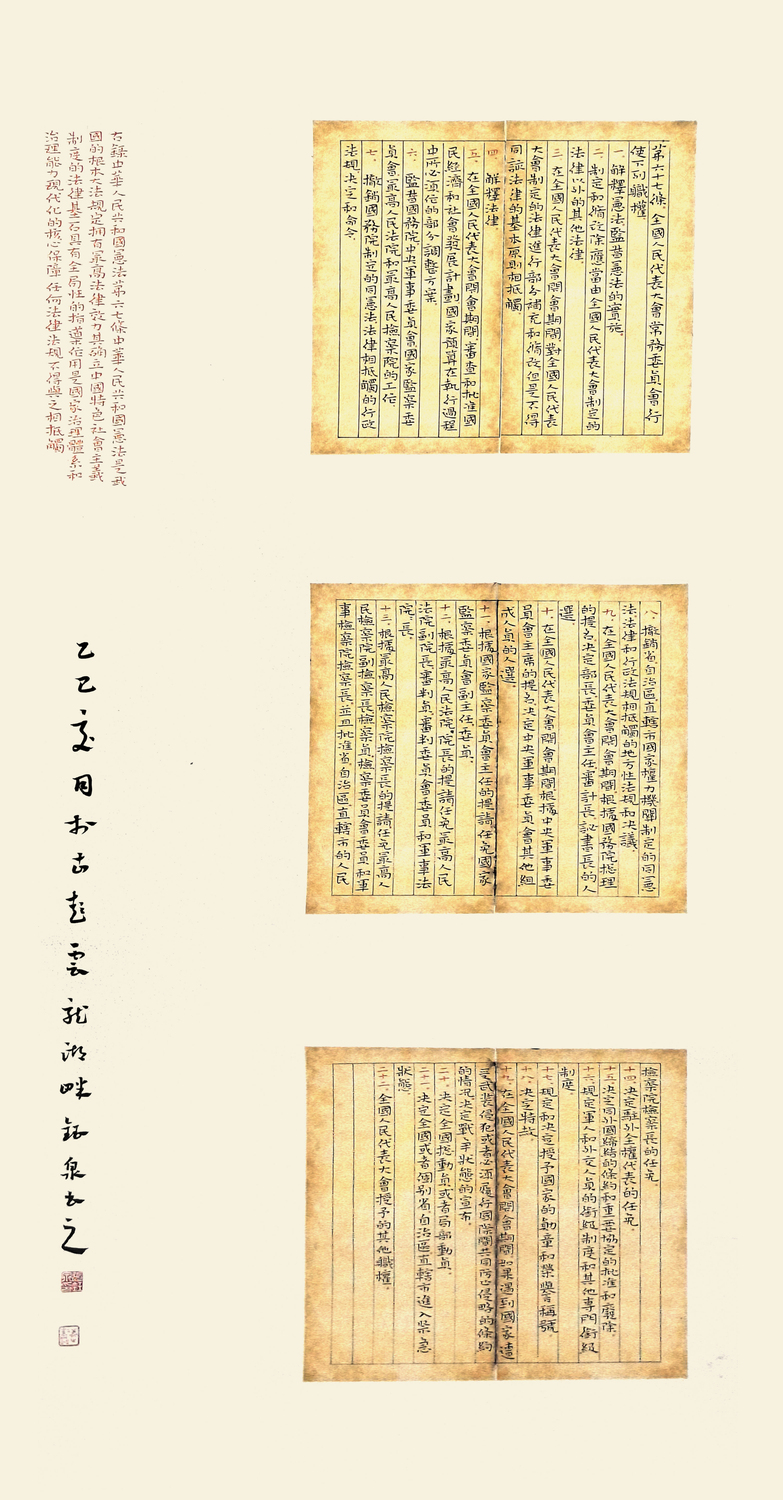 第六十七條.全國人民代表大會常務委員會行
使下列職權
一.解釋憲法監督憲法的實施.
二.制定和修改除應當由全國人民代表大會制定的
法律以外的其他法律.
三.在全國人民代表大會閉會期間對全國人民代表
大會制定的法律進行部分補充和修改但是不得
同該法律的基本原則相抵觸.
四.解釋法律
五.在全國人民代表大會閉會期間.審查和批准國
民經濟和社會發展計劃國家預算在執行過程
中所必須作的部分調整方案.
六.監督國務院中央軍事委員會國家監察委
員會最高人民法院和最高人民檢察院的工作.
七.撤銷國務院制定的同憲法法律相抵觸的行政
法規決定和命令.
八.撤銷省自治區直轄市國家權力機關制定的同憲
法法律和行政法規相抵觸的地方性法規和決議.
九.在全國人民代表大會閉會期間根據國務院總理
的提名決定部長委員會主任審計長秘書長的人
選.
十.在全國人民代表大會閉會期間根據中央軍事委
員會主席的提名決定中央軍事委員會其他組
成人員的人選.
十一.根據國家監察委員會主任的提請任免國家
監察委員會副主任委員.
十二.根據最高人民法院院長的提請任免最高人民
法院副院長審判員審判委員會委員和軍事法
院院長
十三.根據最高人民檢察院檢察長的提請任免最高人
民檢察院副檢察長檢察員檢察委員會委員和軍
事檢察院檢察長.並且批准省自治區直轄市的人民
檢察院檢察長的任免.
十四.決定駐外全權代表的任免.
十五.決定同外國締結的條約和重要協定的批准和廢除.
十六.規定軍人和外交人員的銜級制度和其他專門銜級
制度.
十七.規定和決定授予國家的勛章和榮譽稱號
十八.決定特赦.
十九.在全國人民代表大會閉會期間如果遇到國家遭
受武裝侵犯或者必須履行國際間共同防止侵略的條約
的情況決定戰爭狀態的宣布.
二十.決定全國總動員或者局部動員.
二十一.決定全國或者個別省自治區直轄市進入緊急
狀態
二十二.全國人民代表大會授予的其他職權.
右錄中華人民共和國憲法第六七條中華人民共和國憲法是我
國的根本大法規定擁有最高法律效力其確立中國特色社會主義
制度的法律基石具有全局性的指導作用是國家治理體系和
治理能力現代化的核心保障任何法律法規不得與之相抵觸
乙巳夏月於古彭雲龍湖畔銘泉書之